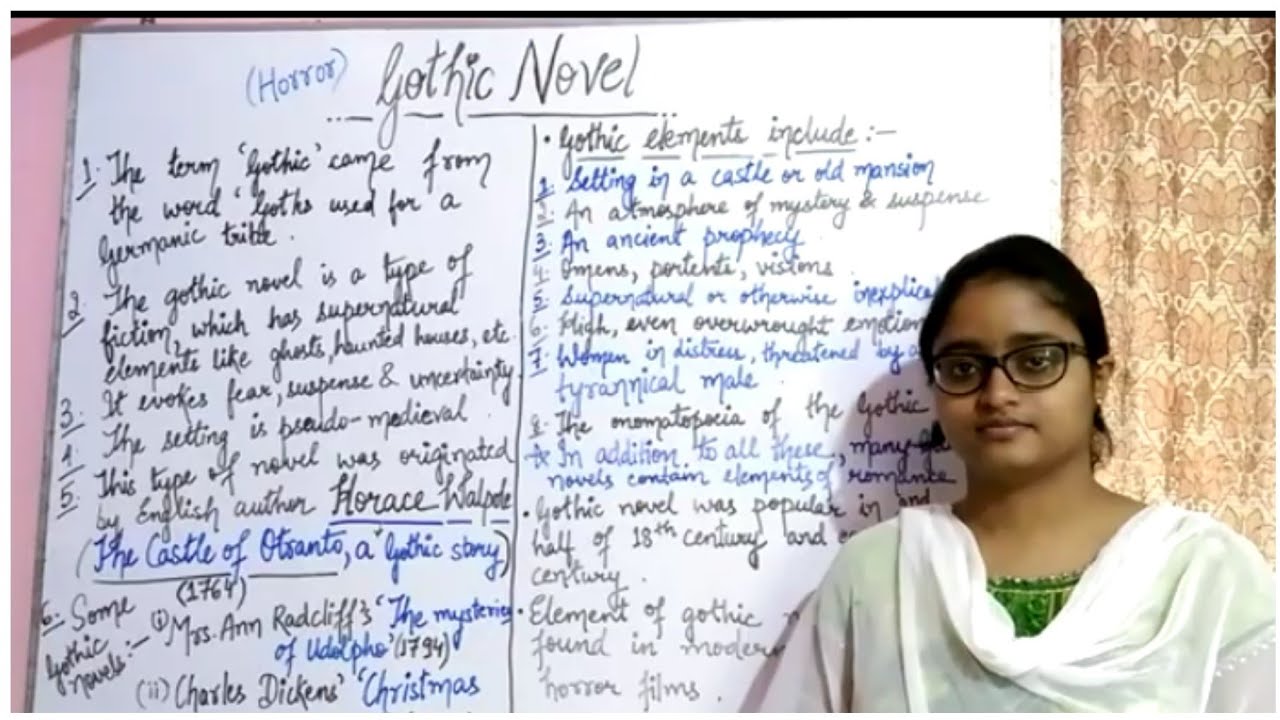 (Horror) Gothic Novel
1. The term 'Gothic' came from
the word 'Goths used for a
Germanic tribe.
2. The gothic novel is a type of
fiction, which has supernatural
elements like ghosts, haunted houses, etc.
3. It evokes fear, suspense & uncertainty.
4. The setting is pseudo-medieval.
5. This type of novel was originated
by English author Horace Walpole
(The Castle of Otranto, a Gothic story)
(1764)
6. Some
Gothic
novels:-
(i) Mrs. Ann Radcliff's 'The mysteries
of Udolpho' (1794)
(ii) Charles Dickens' 'Christmas
• Gothic elements include :-
1. Setting in a castle or old mansion
2. An atmosphere of mystery & suspense
3. An ancient prophecy.
4. Omens, portents, visions.
5. Supernatural or otherwise
6. High, even overwrought
7. Women in distress, threatened by a
tyrannical male.
8. The onomatopoeia of the Gothic
* In addition to all these, many
novels contain elements of romance
• Gothic novel was popular in
half of 18th century and
century.
• Element of gothic
found in
horror films.